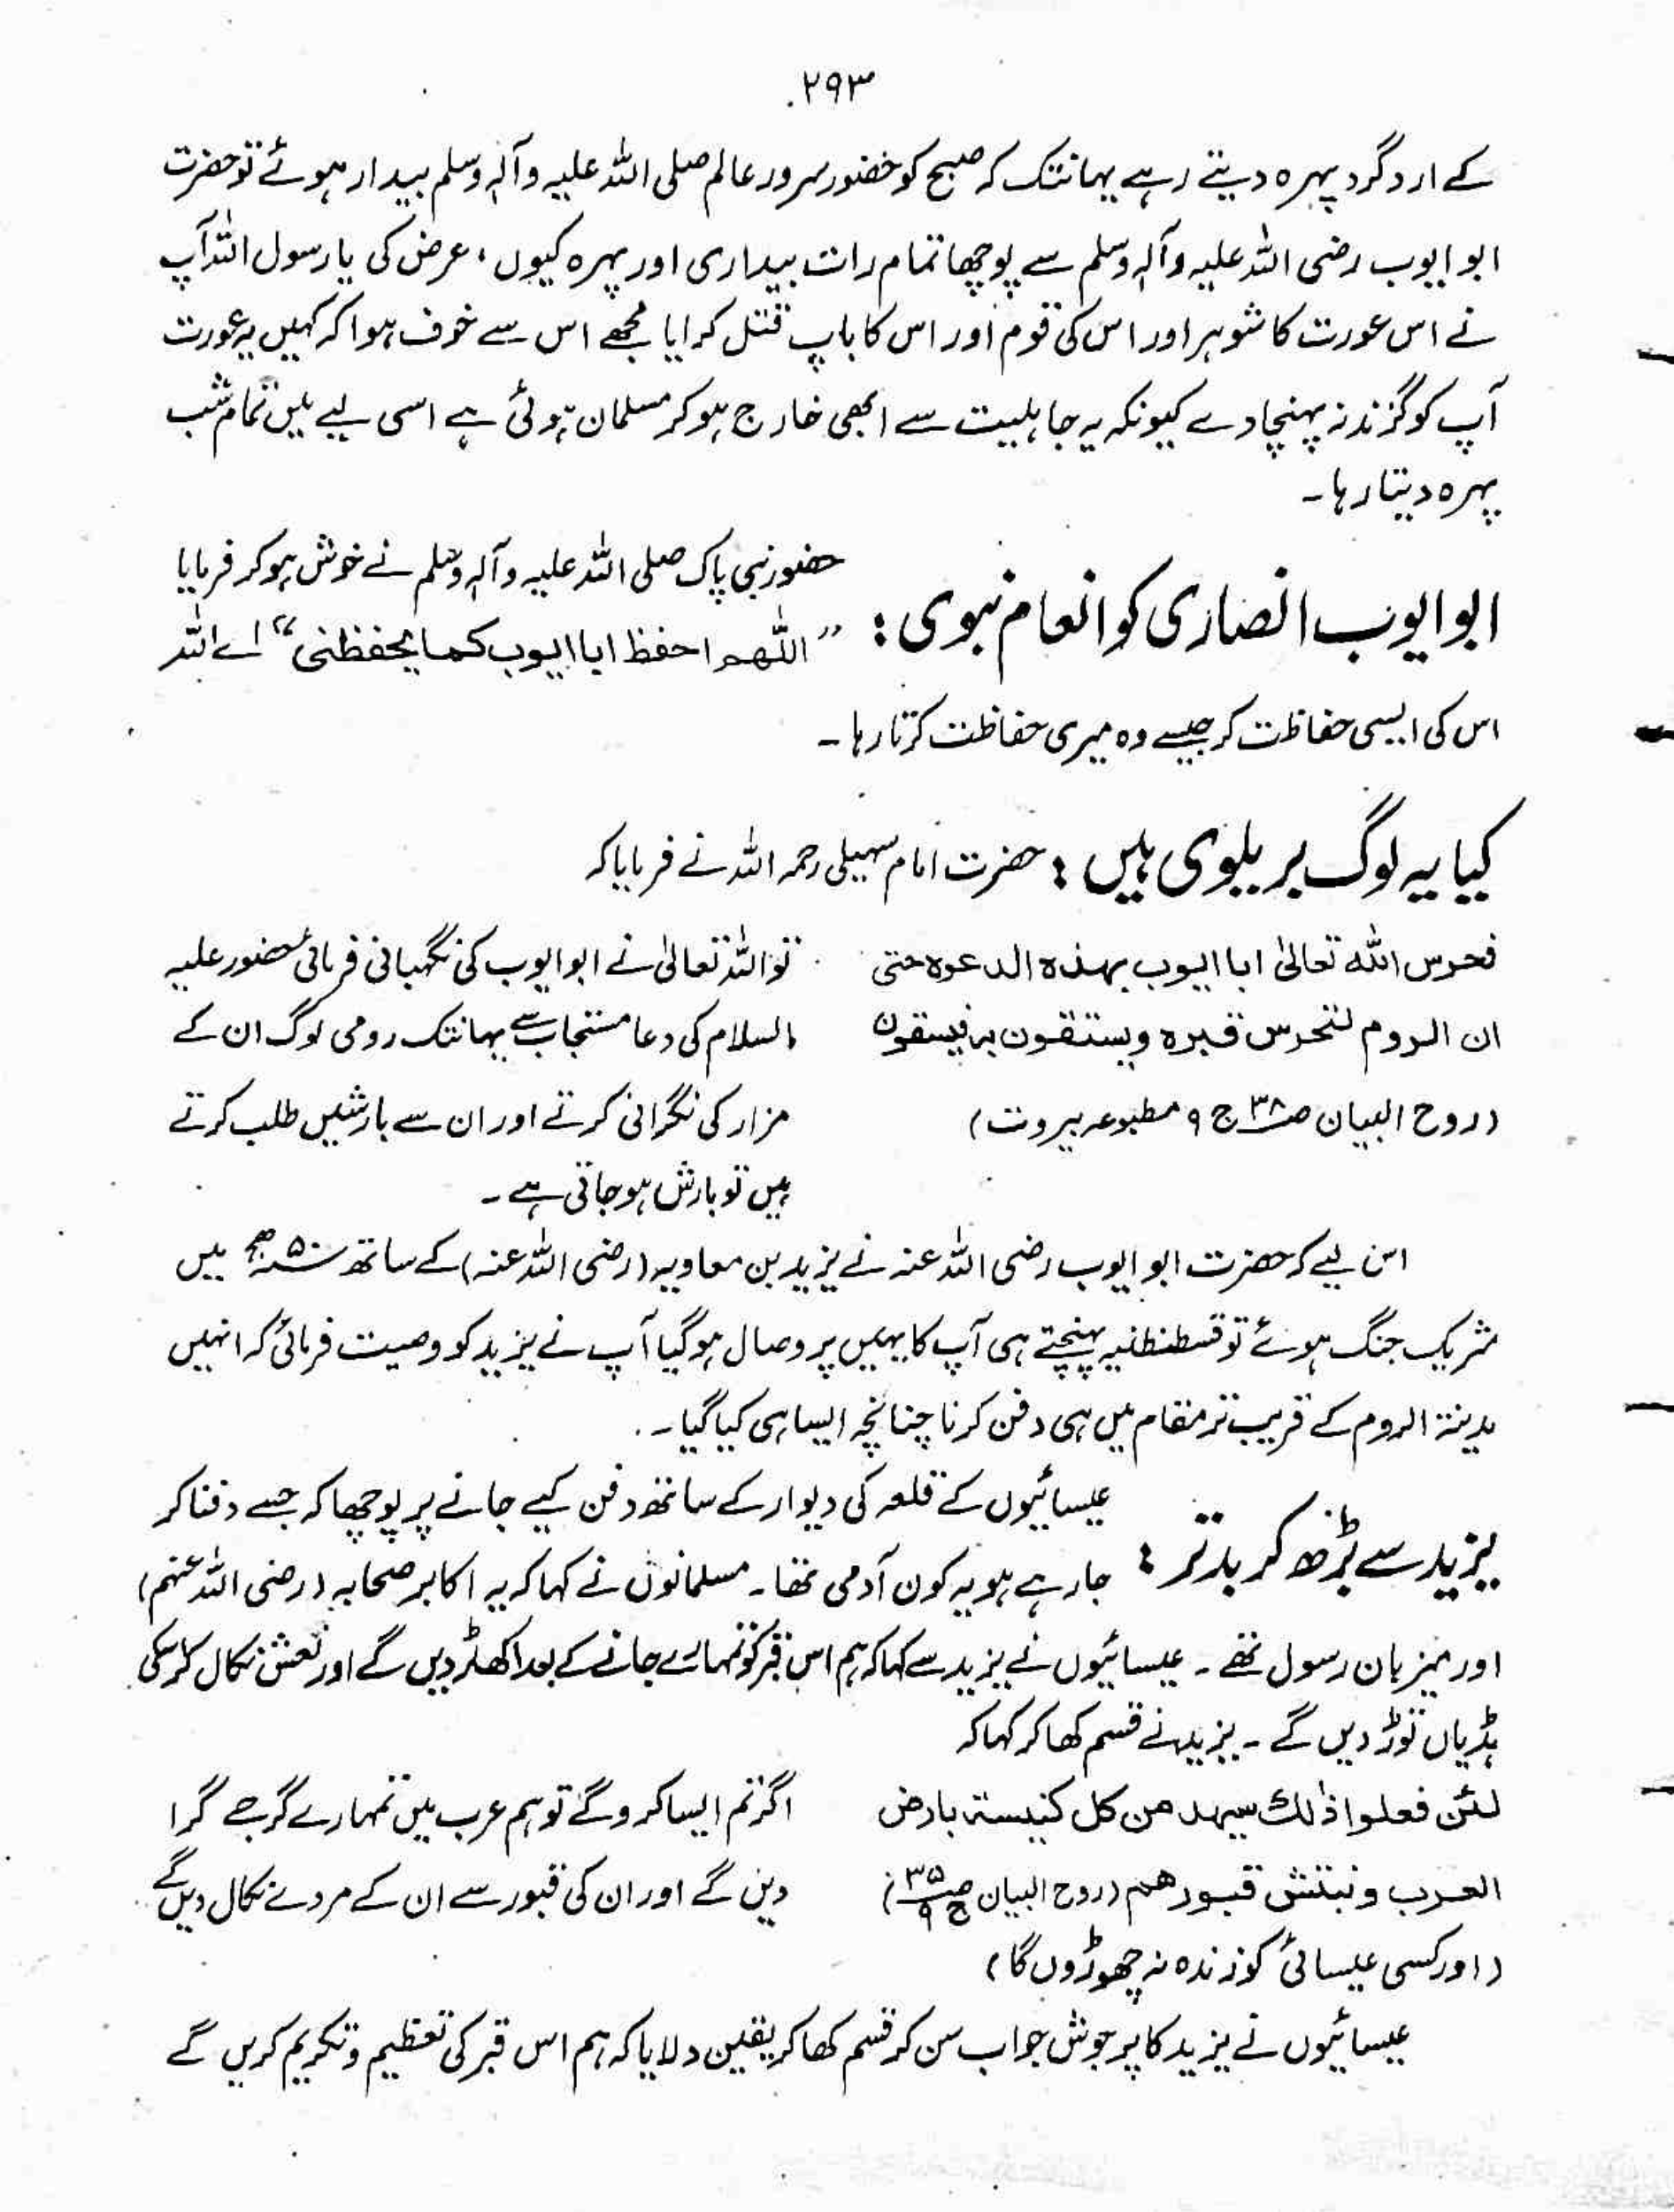 ۲۹۳
کے اردگرد پہرہ دیتے رہے یہانتک کہ صبح کو حضور سرور عالم صلی اللہ علیہ وآلہ وسلم بیدار ہوئے تو حضرت
ابو ایوب رضی اللہ علیہ وآلہ وسلم سے پوچھا تمام رات بیداری اور پہرہ کیوں، عرض کی یا رسول اللہ آپ
نے اس عورت کا شوہر اور اس کی قوم اور اس کا باپ قتل کرایا مجھے اس سے خوف ہوا کہ کہیں یہ عورت
آپ کو گزند نہ پہنچا دے کیونکہ یہ جاہلیت سے ابھی خارج ہو کر مسلمان ہوئی ہے اسی لیے میں تمام شب
پہرہ دیتا رہا۔
ابو ایوب انصاری کو انعام نبوی :
حضور نبی پاک صلی اللہ علیہ وآلہ وسلم نے خوش ہو کر فرمایا
"اللھم احفظ ابا ایوب کما یحفظنی" اے اللہ
اس کی ایسی حفاظت کر جیسے وہ میری حفاظت کرتا رہا۔
کیا یہ لوگ بریلوی ہیں : حضرت امام سہیلی رحمہ اللہ نے فرمایا کہ
فحرس اللہ تعالیٰ ابا ایوب بہذہ الدعوہ حتی
ان الروم لتحرس قبرہ ویستقون بہ فیسقون
(روح البیان ص۳۸ ج ۹ مطبوعہ بیروت)
تو اللہ تعالیٰ نے ابو ایوب کی نگہبانی فرمائی حضور علیہ
السلام کی دعا مستجاب سے یہانتک رومی لوگ ان کے
مزار کی نگرانی کرتے اور ان سے بارشیں طلب کرتے
ہیں تو بارش ہو جاتی ہے۔
اس لیے کہ حضرت ابو ایوب رضی اللہ عنہ نے یزید بن معاویہ (رضی اللہ عنہ) کے ساتھ سنہ ۵۰ھ میں
شریک جنگ ہوئے تو قسطنطنیہ پہنچتے ہی آپ کا یہیں پر وصال ہو گیا آپ نے یزید کو وصیت فرمائی کہ انہیں
مدینۃ الروم کے قریب تر مقام میں ہی دفن کرنا چنانچہ ایسا ہی کیا گیا۔
یزید سے بڑھ کر بدتر :
عیسائیوں کے قلعہ کی دیوار کے ساتھ دفن کیے جانے پر پوچھا کہ جسے دفنا کر
جا رہے ہو یہ کون آدمی تھا۔ مسلمانوں نے کہا کہ یہ اکابر صحابہ (رضی اللہ عنہم)
اور میزبان رسول تھے۔ عیسائیوں نے یزید سے کہا کہ ہم اس قبر کو تمہارے جانے کے بعد اکھیڑ دیں گے اور نعش نکال کر اسکی
ہڈیاں توڑ دیں گے۔ یزید نے قسم کھا کر کہا کہ
لئن فعلوا ذلک سیہد من کل کنیستہ بارض
العرب و نبتش قبورھم (روح البیان ص۳۵ ج۹)
اگر تم ایسا کرو گے تو ہم عرب میں تمہارے گرجے گرا
دیں گے اور ان کی قبور سے ان کے مردے نکال دیں گے
(اور کسی عیسائی کو زندہ نہ چھوڑوں گا)
عیسائیوں نے یزید کا پرجوش جواب سن کر قسم کھا کر یقین دلایا کہ ہم اس قبر کی تعظیم و تکریم کریں گے